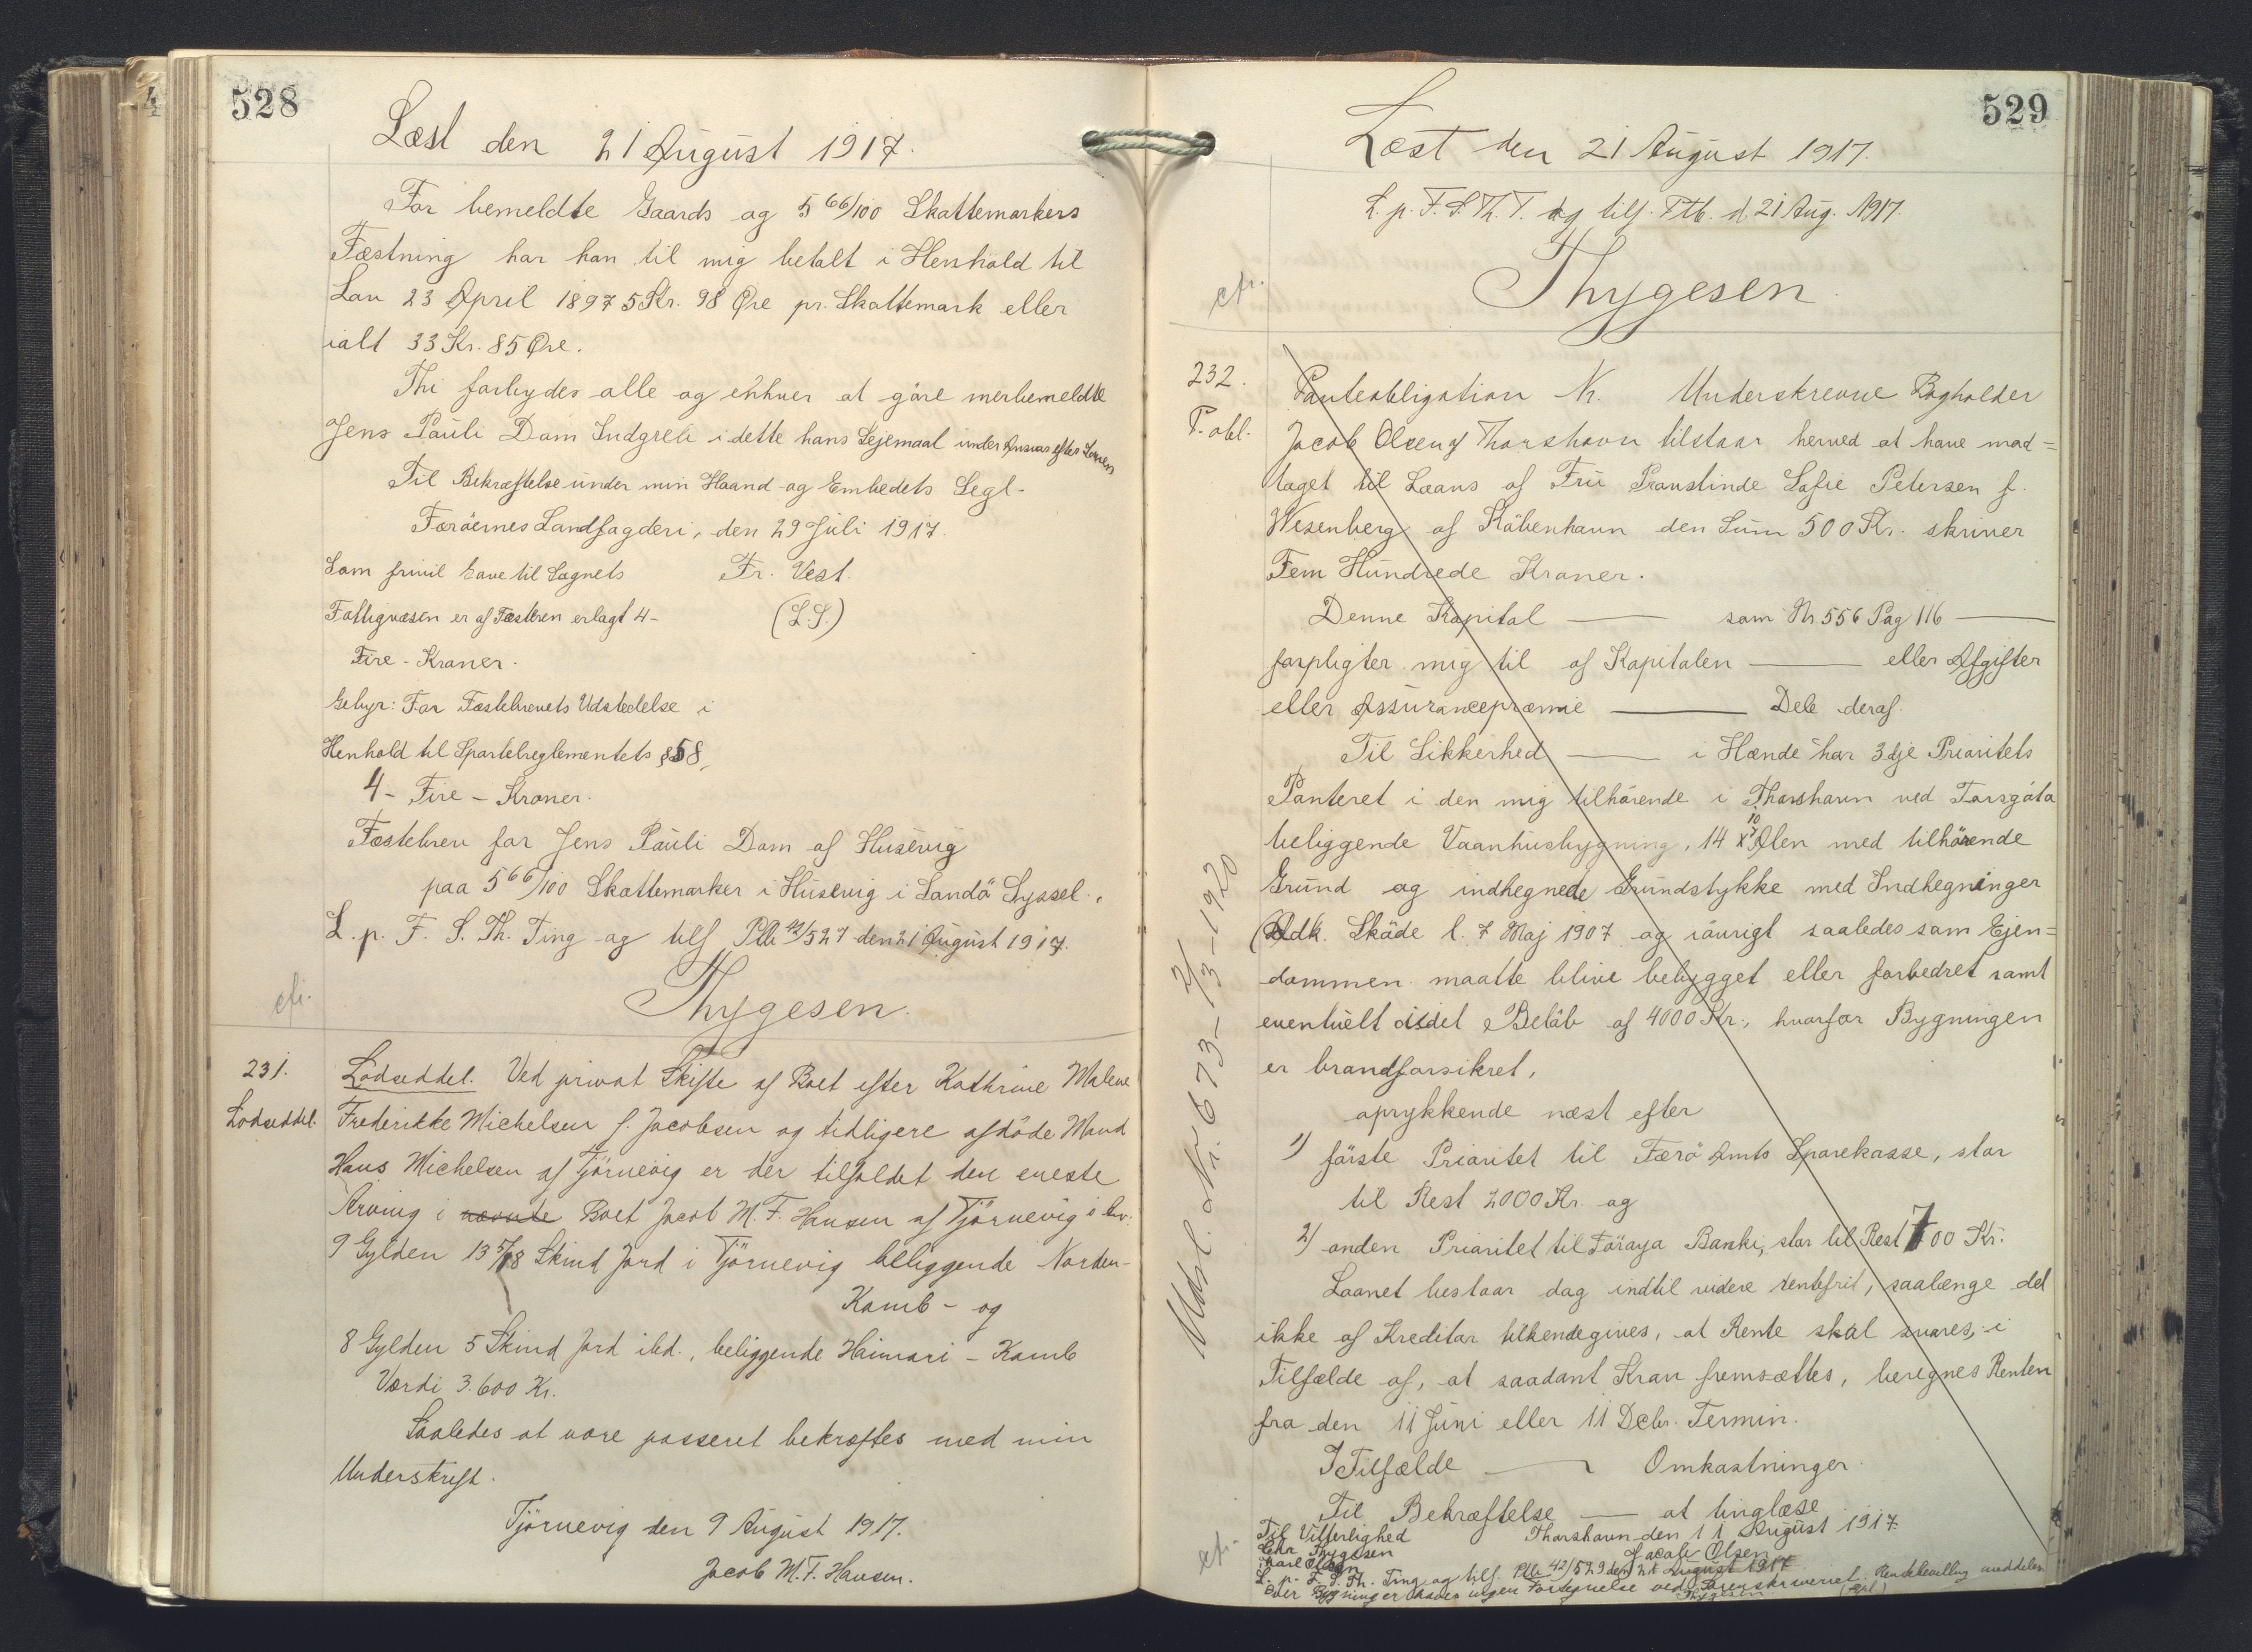 528
Læst den 21 August 1917.
For bemeldte Gaards og 5 66/100 Skattemarkers
Fæstning har han til mig betalt i Henhold til
Lov 23 April 1897 5 Kr. 98 Øre pr. Skattemark eller
ialt 33 Kr. 85 Øre.
Thi forbydes alle og enhver at göre merbemeldte
Jens Pauli Dam Indgreb i dette hans Lejemaal under Ansvar efter Loven
Til Bekræftelse under min Haand og Embedets Segl.
Færöernes Landfogderi, den 29 Juli 1917.
Som frivil Gave til Sognets Fr. Vest.
Fattigvæsen er af Fæsteren erlagt 4- (L.S.)
Fire - Kroner.
Gebyr: For Fæstebrevets Udstedelse i
Henhold til Sportelreglementets §58,
4 - Fire - Kroner.
Fæstebrev for Jens Pauli Dam af Husevig
paa 5 66/100 Skattemarker i Husevig i Sandö Syssel.
L. p. F. S. Th. Ting og tilf Plb 42/527 den 21 August 1917.
cfr. Thygesen.
231.
Lodseddel.
Lodseddel. Ved privat Skifte af Boet efter Kathrine Malene
Frederikke Michelsen f. Jacobsen og tidligere afdöde Mand
Hans Michelsen af Tjörnevig er der tilfaldet den eneste
Arving i nævnte Boet Jacob M. F. Hansen af Tjörnevig
9 Gylden 13 5/18 Skind Jord i Tjörnevig beliggende Norden-
Kamb - og
8 Gylden 5 Skind Jord ibd., beliggende Heimari - Kamb
Værdi 3.600 Kr.
Saaledes at være passeret bekræftes med min
Underskrift.
Tjörnevig den 9 August 1917.
Jacob M. F. Hansen.
529
Læst den 21 August 1917.
L. p. F. S. Th. T. og tilf. Ftb. d 21 Aug. 1917.
cfr. Thygesen.
232.
P. obl.
Panteobligation Kr. Underskrevne Bogholder
Jacob Olsen af Thorshavn tilstaar herved at have mod=
taget til Laans af Fru Provstinde Sofie Petersen f.
Wesenberg af Köbenhavn den Sum 500 Kr. skriver
Fem Hundrede Kroner.
Denne Kapital —— som Nr. 556 Pag 116 ——
forpligter mig til af Kapitalen —— eller Afgifter
eller Assurancepræmie —— Dele deraf.
Til Sikkerhed —— i Hænde har 3dje Prioritets
Panteret i den mig tilhörende i Thorshavn ved Torsgöta
beliggende Vaanhusbygning, 14 x 10 Alen med tilhörende
Grund og indhegnede Grundstykke med Indhegninger
(Adk. Sköde l. 7 Maj 1907 og iövrigt saaledes som Ejen=
dommen maatte blive bebygget eller forbedret samt
eventuelt i det Belöb af 4000 Kr., hvorfor Bygningen
er brandforsikret,
oprykkende næst efter
1) förste Prioritet til Færö Amts Sparekasse, stor
til Rest 2000 Kr. og
2) anden Prioritet til Föroya Banki, stor til Rest 700 Kr.
Laanet bestaar dog indtil videre rentefrit, saalænge det
ikke af Kreditor tilkendegives, at Rente skal svares, i
Tilfælde af, at saadant Krav fremsættes, beregnes Renten
fra den 11 Juni eller 11 Decbr. Termin.
I Tilfælde —— Omkostninger.
Til Bekræftelse —— at tinglæse
Til Vitterlighed Thorshavn den 11 August 1917.
Chr Thygesen Jacob Olsen
Karl Olsen
cfr. L. p. F. S. Th. Ting og tilf. Plb 42/529 den 21 August 1917
Over Bygninger haves ingen Fortegnelse ved Sorenskriveriet. Rentebevilling meddeles
Thygesen
Udsl. Nr. 673 - 2/3 - 1920